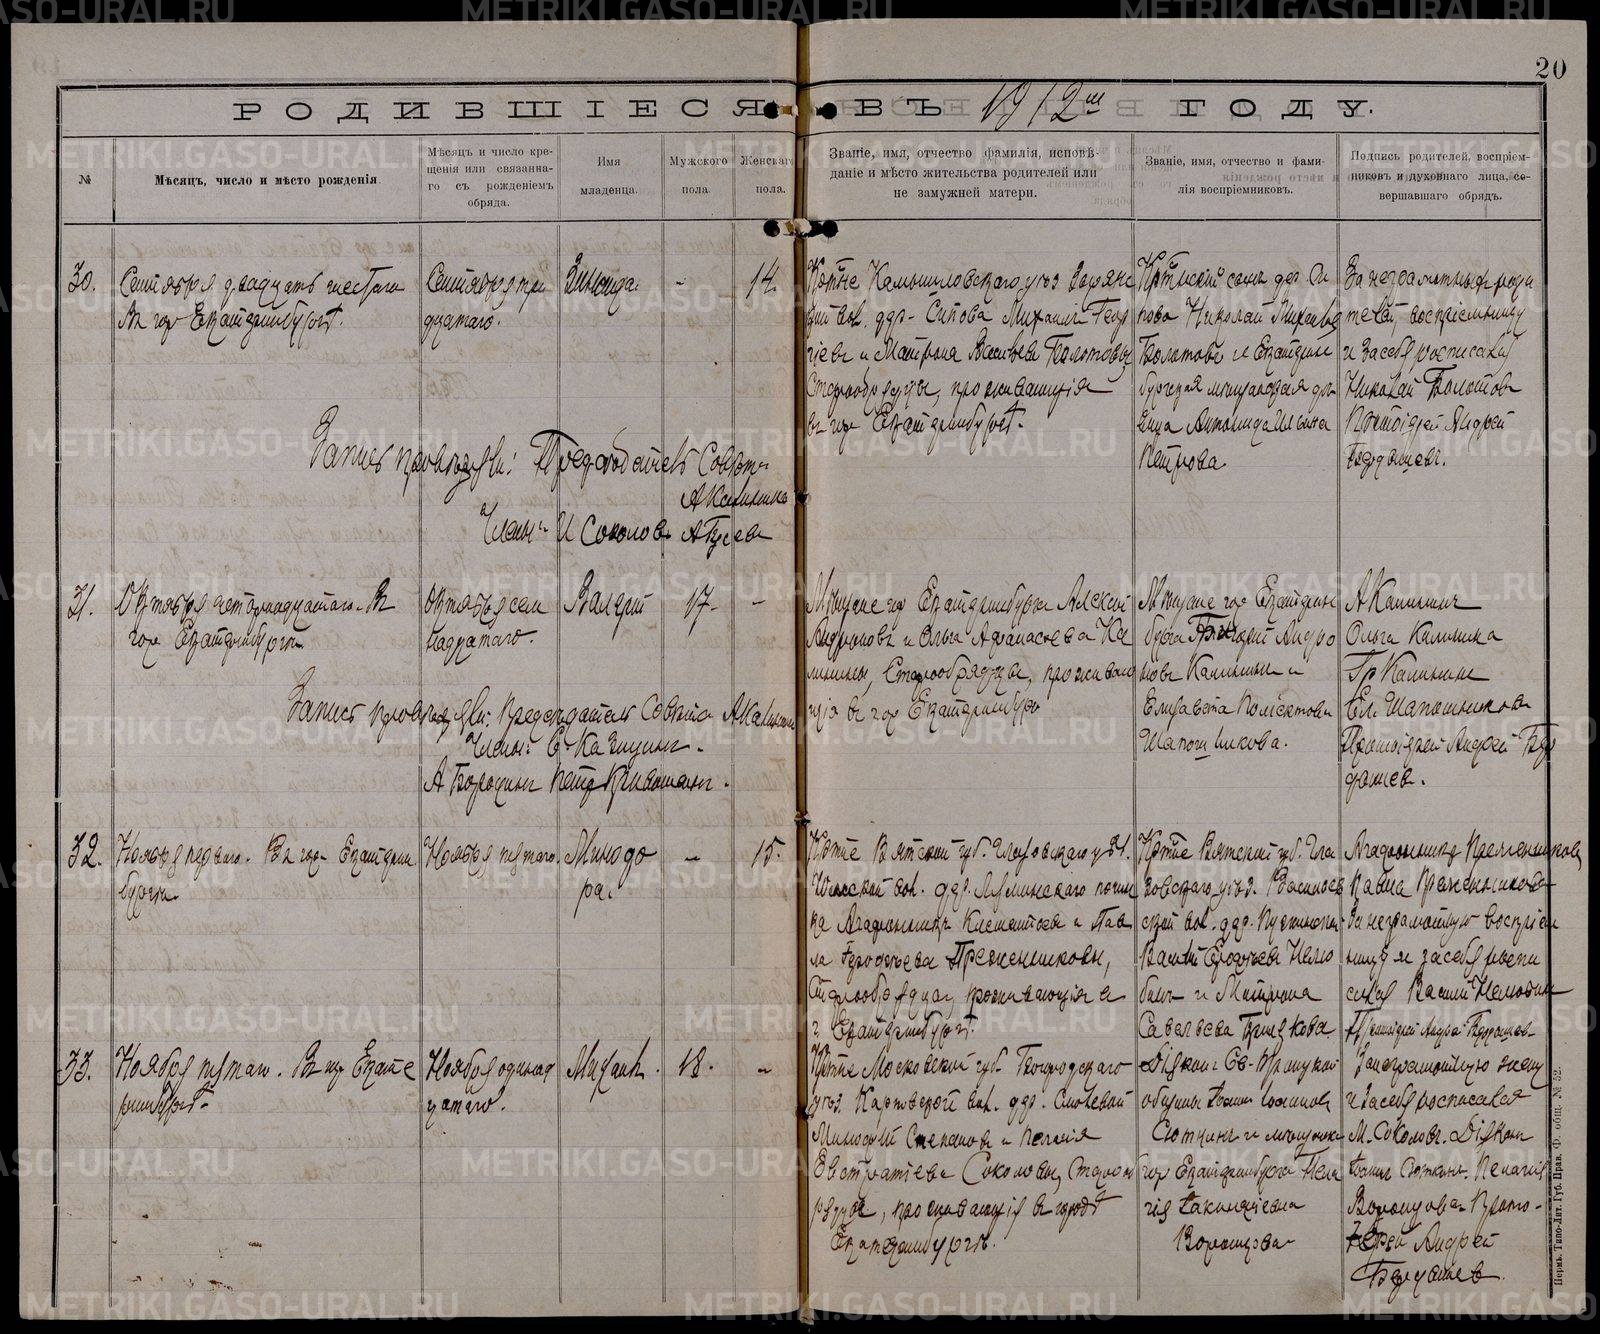 20
РОДИВШІЕСЯ ВЪ 1912мъ ГОДУ.
№
Мѣсяцъ, число и мѣсто рожденія.
Мѣсяцъ и число кре-
щенія или связанна-
го съ рожденіемъ
обряда.
Имя
младенца.
Мужского
пола.
Женскаго
пола.
Званіе, имя, отчество фамилія, исповѣ-
даніе и мѣсто жительства родителей или
не замужней матери.
Званіе, имя, отчество и фами-
лія воспріемниковъ.
Подпись родителей, воспріем-
никовъ и духовнаго лица, со-
вершавшаго обрядъ.
30.
Сентября двадцать шестаго
Въ гор Екатеринбургѣ.
Сентября три
дцатаго.
Зинаида.
-
14.
Кр-не Камышловскаго уѣз
вол. дер. Сипова Михаилъ Геор
гіевъ и Матрона Васильева Болотовы
Старообрядцы, проживающіе
въ гор Екатеринбургѣ.
дер Си
пова Николай Михайлов
Болотовъ и Екатерин
бургская мѣщанская дѣ
вица Антонида Ильина
Петрова
За неграмотныхъ роди
телей воспріемницу
и за себя росписался
Николай Болотовъ
Протоіерей Андрей
Бердышев.
Запись провѣряли: Председатель Совѣта
А Калинин
Члены: И Соколов А Гусев
31.
Октября четырнадцатаго. Въ
гор Екатеринбургѣ.
Октября сем
надцатаго.
Валерій
17.
-
Мѣщане гор Екатеринбурга Алексѣй
Андроновъ и Ольга Афанасьева Ка
линины, Старообрядцы, проживаю
щіе въ гор Екатеринбургѣ
Мѣщане гор Екатерин
бурга Григорій Андро
новъ Калининъ и
Елизавета Полиектова
Шапошникова.
А Калининъ
Ольга Калинина
Гр Калининъ
Ел. Шапошникова
Протоіерей Андрей Бер
дышев.
Запись провѣряли: Председатель Совѣта А Калинин
Члены:
А Бородинъ Петр
32.
Ноября перваго. Въ гор Екатерин
бургѣ.
Ноября пятаго.
Минодо
ра.
-
15.
Кр-не Вятской губ. Глазовскаго уѣз.
вол. дер. почин
ка Агафоникъ Климентьевъ и Пав
ла Ерофеева Преженниковы,
Старообрядцы, проживающіе въ
г Екатеринбургѣ.
Кр-не Вятской губ. Гла
зовскаго уѣз.
вол. дер.
Василій Ерофеевъ Нелю
бинъ и Матрона
Савельева
Агафоникъ Преженниковъ
Павла Преженникова
За неграмотную воспріем
ницу и за себя роспи
сался Василий Нелюбин
Протоіерей Андрей Бердышев
33.
Ноября пятаго. Въ гор Екате
ринбургѣ.
Ноября одинад
цатаго.
Михаилъ.
18.
-
Кр-не Московской губ. Богородскаго
уѣз. Карповской вол. дер. Смолевой
Степановъ и Пелагія
Евстратіева Соколовы, Старооб
рядцы, проживающіе въ городѣ
Екатеринбургѣ.
Діяконъ Св-Троицкой
общины Іоаннъ
Сюткинъ и мѣщанка
гор Екатеринбурга Пела
гія
Воронцова
За неграмотную жену
и за себя росписался
М. Соколовъ. Діяконъ
Іоаннъ Сюткинъ. Пелагия
Воронцова. Прото-
іерей Андрей
Бердышев.
Пермь. Типо-Лит. Губ. Прав. Ф. общ. № 52.
METRIKI.GASO-URAL.RU